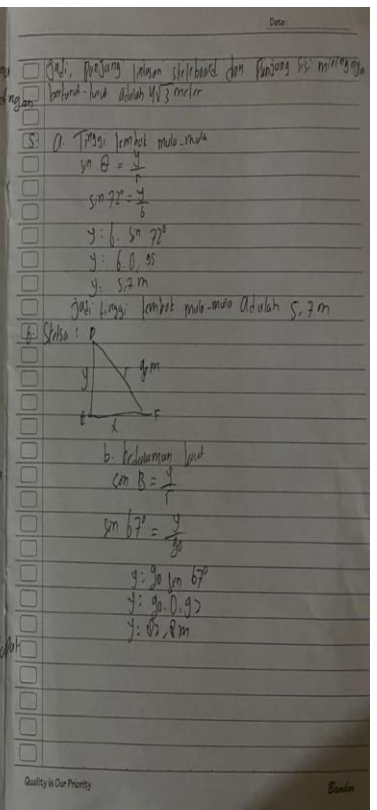 Date:
Jadi, Panjang lintasan skateboard dan Panjang sisi miringnya
berturut-turut adalah 4√3 meter
dengan
5. a. Tinggi lembat mula-mula
sin θ = y/r
sin 72° = y/6
y = 6. sin 72°
y = 6. 0,95
y = 5,7 m
Jadi tinggi lembat mula-mula adalah 5,7 m
6.
D
y
r
90 m
E
F
x
b. kedalaman laut
sin B = y/r
sin 67° = y/90
y = 90 sin 67°
y = 90. 0,92
y = 82,8 m
Quality is Our Priority